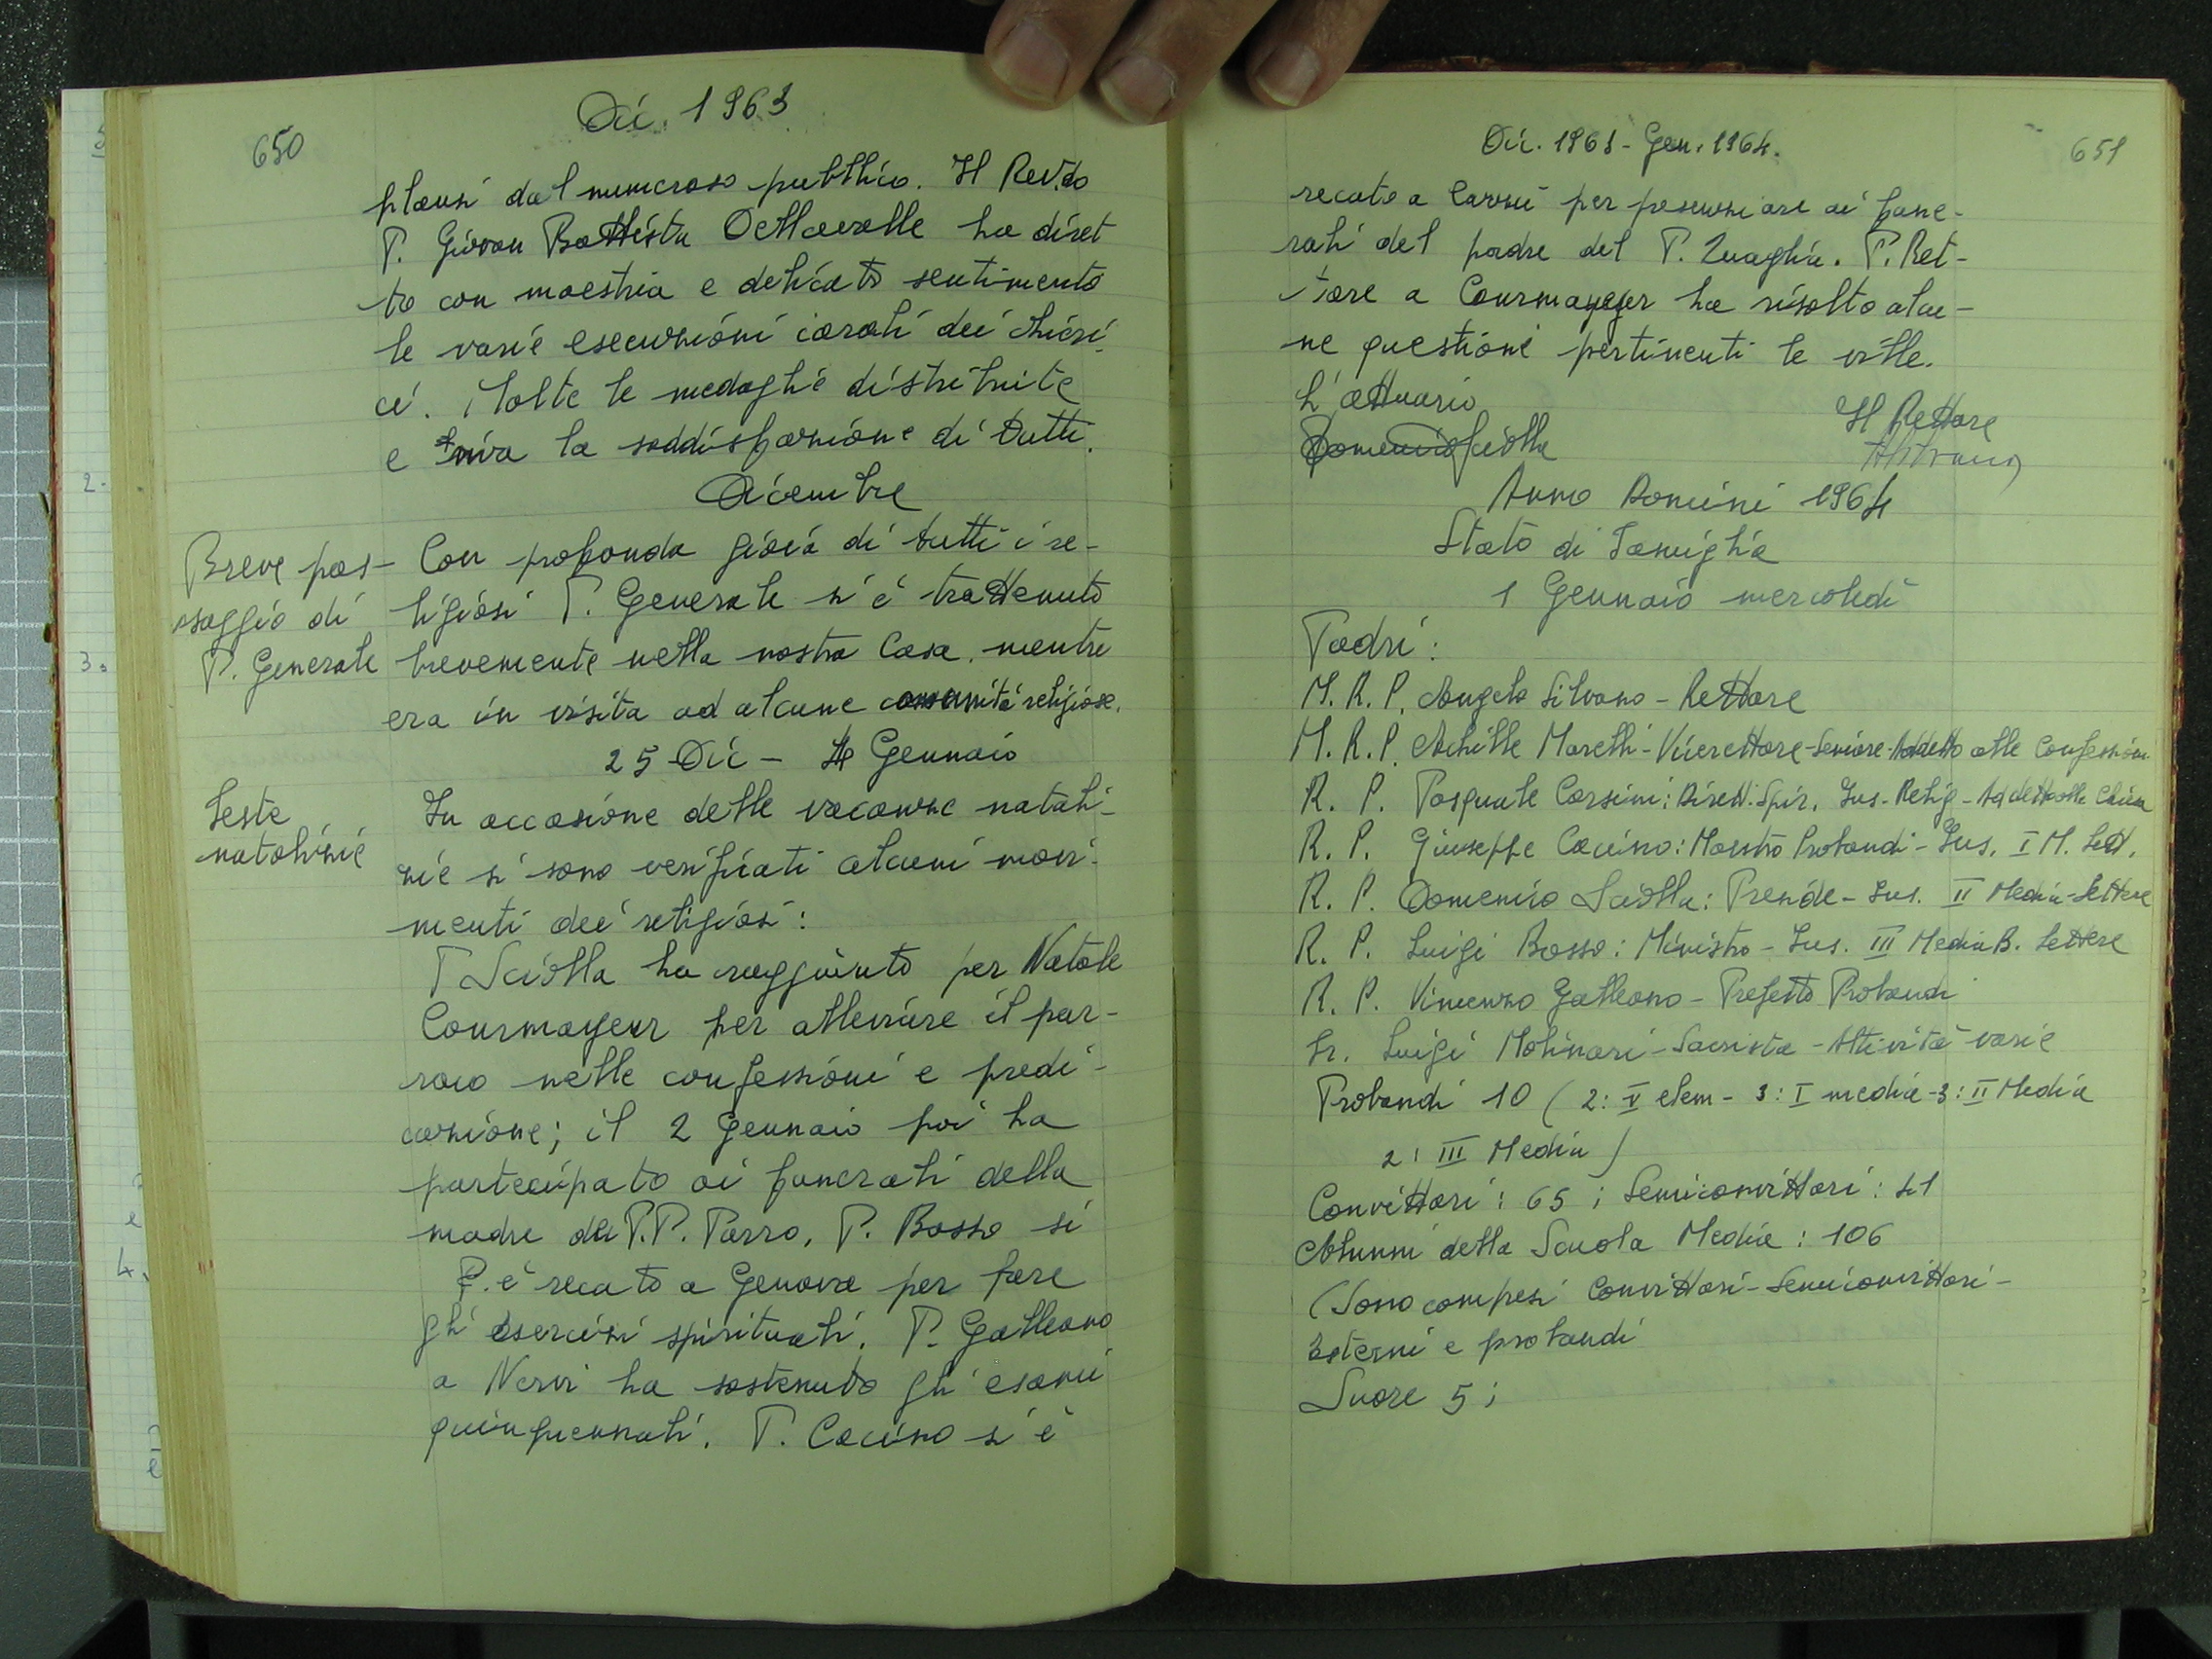 650
Dic. 1963
plausi dal numeroso pubblico. Il Rev.do
P. Giovan Battista Dellavalle ha diret
to con maestria e delicato sentimento
le varie esecuzioni corali dei chieri
ci. Molte le medaglie distribuite
e viva la soddisfazione di tutti.
Dicembre
Breve pas-
saggio di
P. Generale
Con profonda gioia di tutti i re-
ligiosi P. Generale si è trattenuto
brevemente nella nostra Casa, mentre
era in visita ad alcune comunità religiose.
25 Dic - Gennaio
Feste
natalizie
In occasione delle vacanze natali-
zie si sono verificati alcuni movi-
menti dei religiosi:
P Sciolla ha raggiunto per Natale
Courmayeur per alleviare il par-
roco nelle confessioni e predi-
cazione; il 2 gennaio poi ha
partecipato ai funerali della
madre del P.P. Parro, P. Bosso si
P. è recato a Genova per fare
gli esercizi spirituali. P. Galleano
a Nervi ha sostenuto gli esami
quinquennali. P. Cacino si è
Dic. 1963 - Gen. 1964.
651
recato a Carrù per presenziare ai fune-
rali del padre del P. Quaglia. P. Ret-
tore a Courmayeur ha risolto alcu-
ne questioni pertinenti le ville.
L'attuario
Il Rettore
Domenico Sciolla
Anno Domini 1964
Stato di Famiglia
1 Gennaio mercoledì
Padri:
M. R. P. Angelo Silvano - Rettore
M. R. P. Achille Marelli - Vicerettore - Seniore - Addetto alle Confessioni
R. P. Pasquale Corsini: Dirett. Spir. Ins. Relig - Addetto alla Chiesa
R. P. Giuseppe Cacino: Maestro Probandi - Ins. I M. Lett.
R. P. Domenico Sciolla: Preside - Ins. II Media - Lettere
R. P. Luigi Bosso: Ministro - Ins. III Media B. Lettere
R. P. Vincenzo Galleano - Prefetto Probandi
Fr. Luigi Molinari - Sacrista - Attività varie
Probandi 10 (2: V elem - 3: I media - 3: II Media
2: III Media)
Convittori: 65; Semiconvittori: 21
Alunni della Scuola Media: 106
(Sono compresi Convittori - Semiconvittori -
Esterni e probandi
Suore 5;